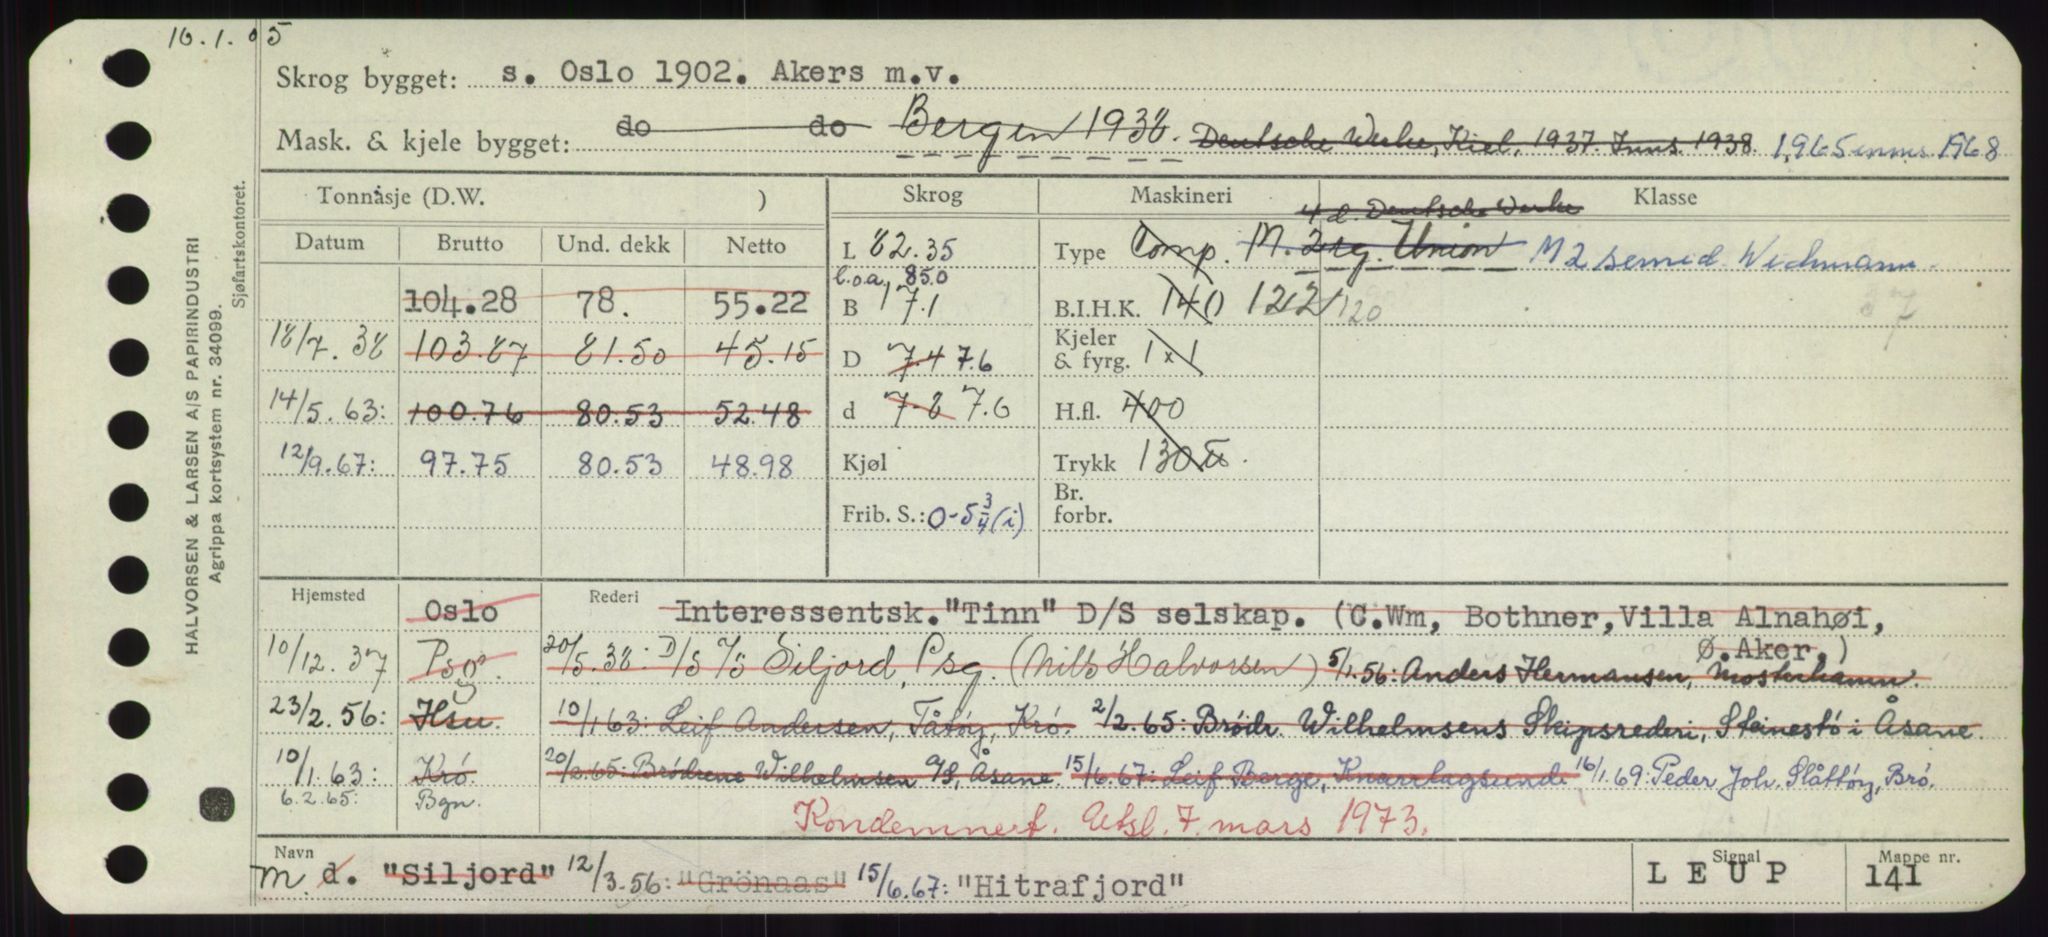 10.1.05
Skrog bygget: s. Oslo 1902. Akers m.v.
Mask. & kjele bygget: do do Bergen 1938. Deutsche Werke, Kiel. 1937. Inns. 1938. 1965 inns. 1968
Tonnasje (D.W. ) Skrog Maskineri Klasse
4 d. Deutsche Werke
Datum Brutto Und. dekk Netto L 82.35 Type Comp. M. 2 sg. Union M 2 semid. Wichmann.
l.o.a. 85.0
104.28 78. 55.22 B 17.1 B.I.H.K. 140 122 120
18/7. 38 103.87 81.50 45.15 D 7.4 7.6 Kjeler & fyrg. 1 x 1
14/5. 63: 100.76 80.53 52.48 d 7.8 7.0 H.fl. 400
12/9.67: 97.75 80.53 48.98 Kjøl Trykk 130
Frib. S.: 0-5 3/4 (i) Br. forbr.
Hjemsted Oslo Rederi Interessentsk. "Tinn" D/S selskap. (C.Wm, Bothner, Villa Alnahøi,
Ø. Aker.)
10/12. 37 Psg. 20/5.38: D/S A/S Siljord, Psg. (Nils Halvorsen) 5/1.56: Anders Hermansen, Mosterhamn.
23/2. 56: Hsu. 10/1 63: Leif Andersen, Tåtöy, Krö. 2/2.65: Brödr. Wilhelmsens Skipsrederi, Steinestö i Åsane.
10/1.63: Krö. 20/2.65: Brödrene Wilhelmsen A/S, Åsane. 15/6.67: Leif Borge, Knarrlagsund. 16/1.69: Peder Joh. Slåttöy, Brö.
6.2.65: Bgn.
Kondemnert. Utsl. 7. mars 1973.
Navn Signal Mappe nr.
m d. "Siljord" 12/3.56: "Grönaas" 15/6.67: "Hitrafjord" L E U P 141
HALVORSEN & LARSEN A/S PAPIRINDUSTRI
Agrippa kortsystem nr. 34099.
Sjøfartskontoret.